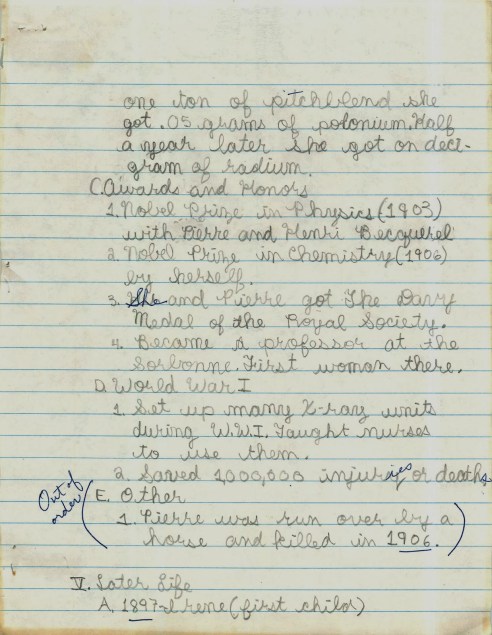 one ton of pitchblend she
got .05 grams of polonium. Half
a year later she got on deci-
gram of radium.
C. Awards and Honors
1. Nobel Prize in Physics (1903)
with Pierre and Henri Becquerel
2. Nobel Prize in Chemistry (1906)
by herself.
3. She and Pierre got The Davy
Medal of the Royal Society.
4. Became a professor at the
Sorbonne. First woman there.
D. World War I
1. Set up many X-ray units
during W.W.I. Taught nurses
to use them.
2. Saved 1,000,000 injuries or deaths
Out of
order
E. Other
1. Pierre was run over by a
horse and killed in 1906.
V. Later Life
A. 1897-Irene (first child)